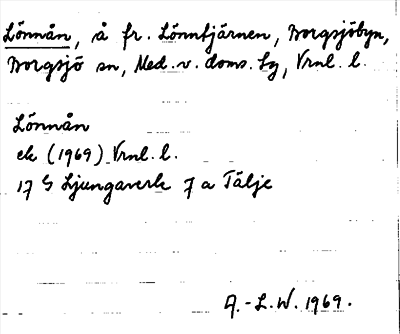 Lönnån, å fr. Lönntjärnen, Borgsjöbyn,
Borgsjö sn, Med. v. doms. tg, Vrnl. l.
Lönnån
ek (1969) Vrnl. l.
17 G Ljungaverk 7 a Tälje
A.-L.W. 1969.